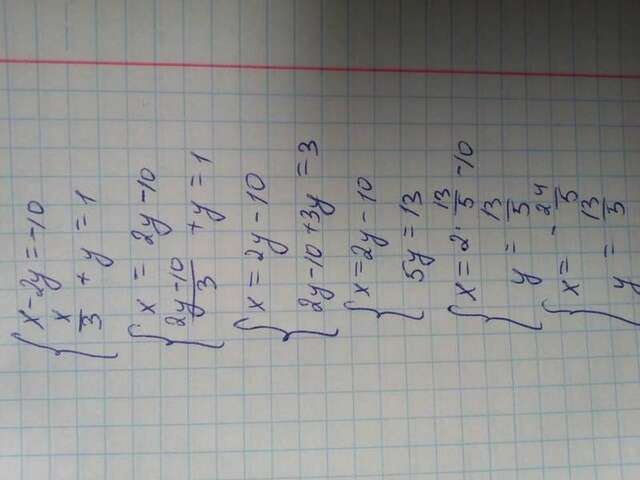 { x - 2y = -10
x/3 + y = 1
{ x = 2y - 10
(2y-10)/3 + y = 1
{ x = 2y - 10
2y - 10 + 3y = 3
{ x = 2y - 10
5y = 13
{ x = 2 · 13/5 - 10
y = 13/5
{ x = - 24/5
y = 13/5